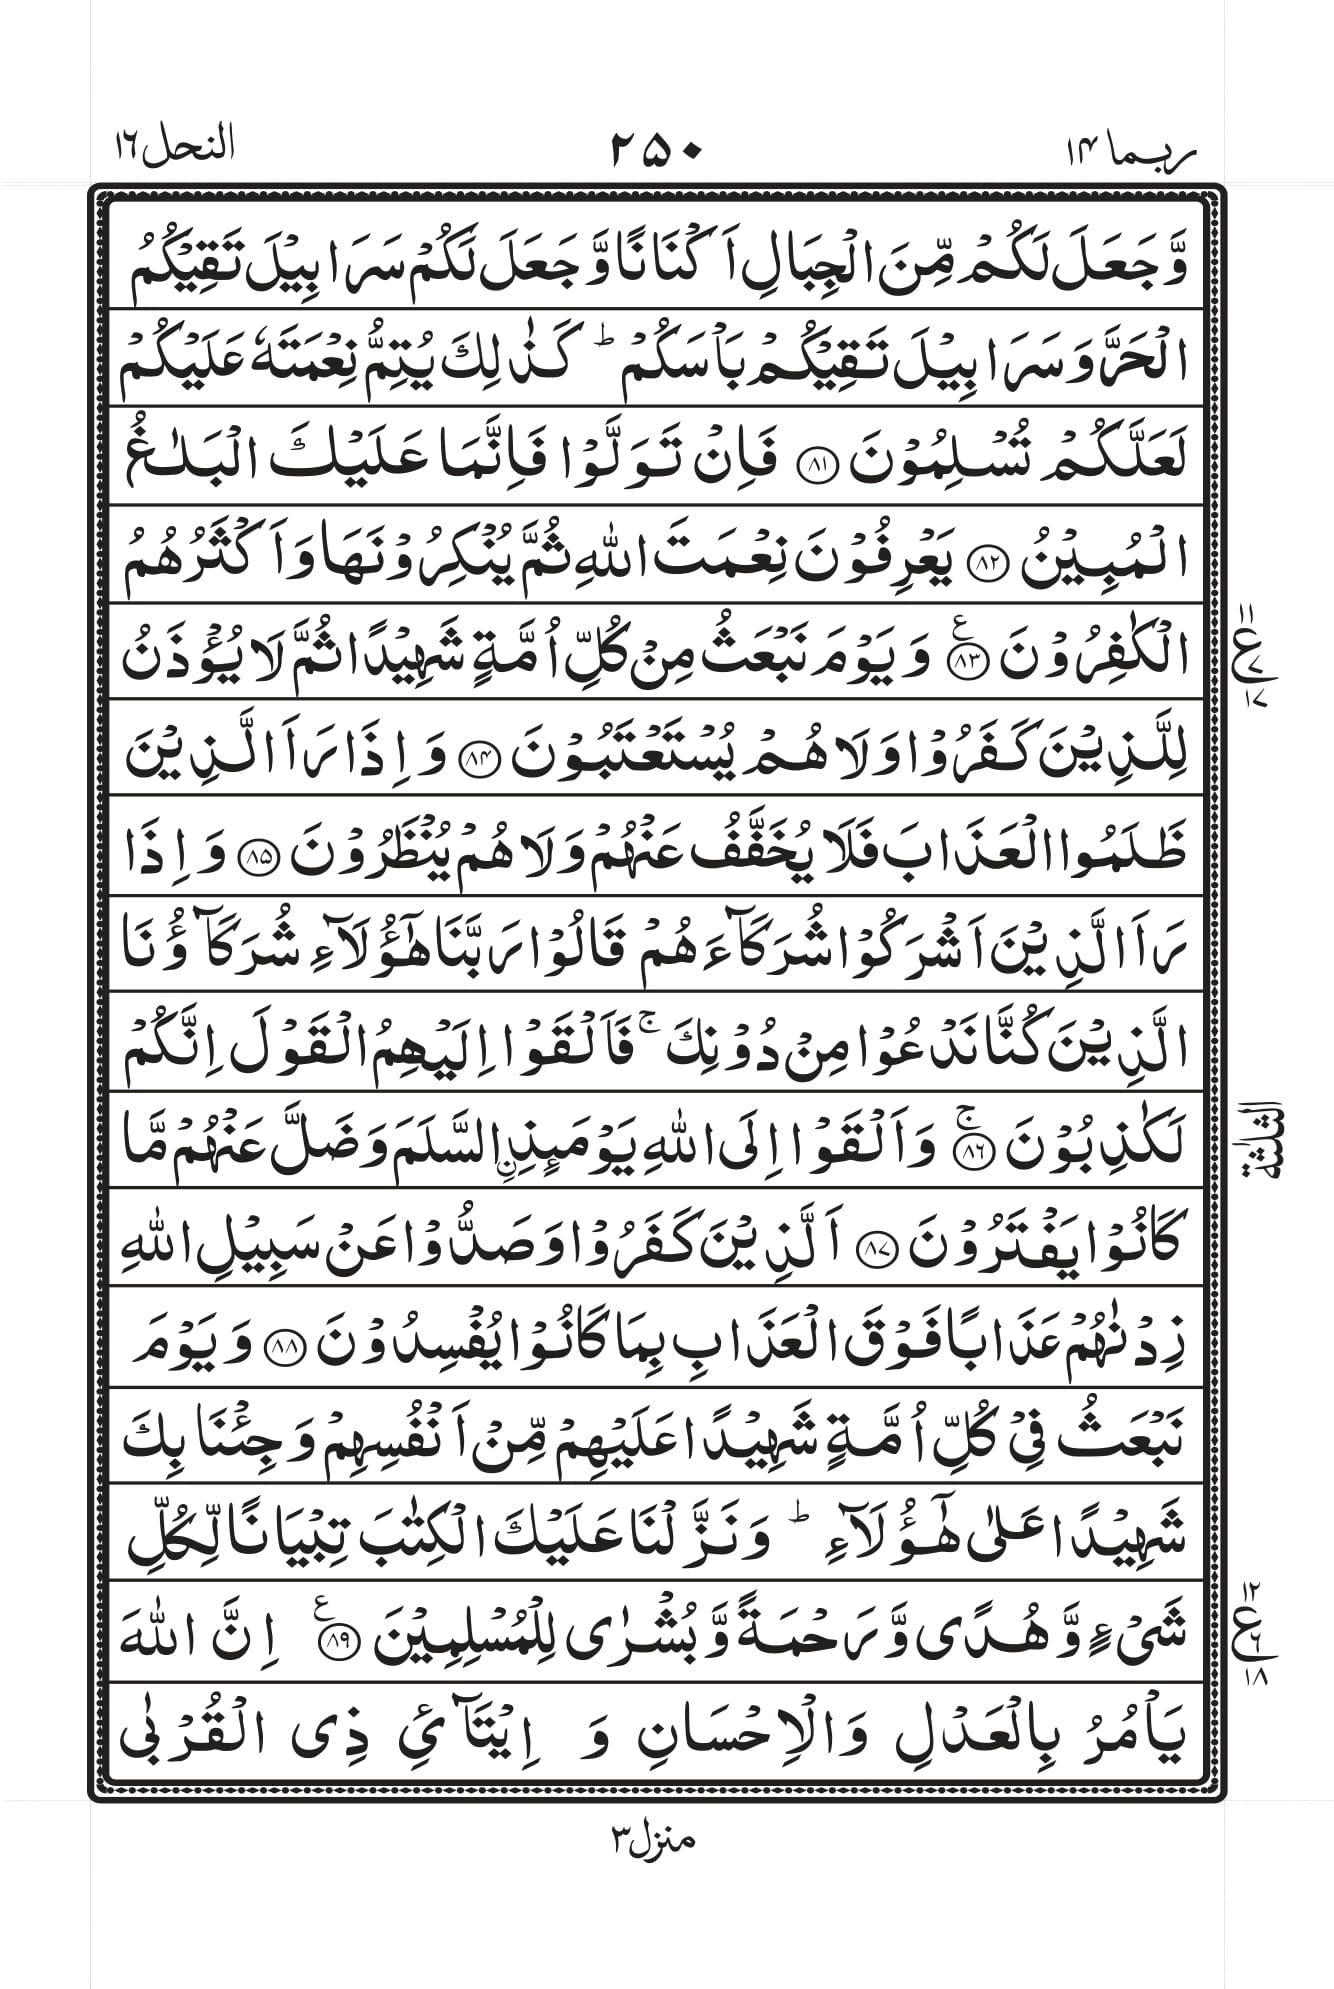 ربما ۱۴
۲۵۰
النحل ۱۶
وَّجَعَلَ لَكُمْ مِّنَ الْجِبَالِ اَكْنَانًا وَّجَعَلَ لَكُمْ سَرَابِيْلَ تَقِيْكُمُ
الْحَرَّ وَسَرَابِيْلَ تَقِيْكُمْ بَاْسَكُمْ ؕ كَذٰلِكَ يُتِمُّ نِعْمَتَهٗ عَلَيْكُمْ
لَعَلَّكُمْ تُسْلِمُوْنَ ﴿۸۱﴾ فَاِنْ تَوَلَّوْا فَاِنَّمَا عَلَيْكَ الْبَلٰغُ
الْمُبِيْنُ ﴿۸۲﴾ يَعْرِفُوْنَ نِعْمَتَ اللّٰهِ ثُمَّ يُنْكِرُوْنَهَا وَاَكْثَرُهُمُ
الْكٰفِرُوْنَ ﴿۸۳﴾ ع وَيَوْمَ نَبْعَثُ مِنْ كُلِّ اُمَّةٍ شَهِيْدًا ثُمَّ لَا يُؤْذَنُ
۱۱
ع
۷
۱۷
لِلَّذِيْنَ كَفَرُوْا وَلَا هُمْ يُسْتَعْتَبُوْنَ ﴿۸۴﴾ وَاِذَا رَاَ الَّذِيْنَ
ظَلَمُوا الْعَذَابَ فَلَا يُخَفَّفُ عَنْهُمْ وَلَا هُمْ يُنْظَرُوْنَ ﴿۸۵﴾ وَاِذَا
رَاَ الَّذِيْنَ اَشْرَكُوْا شُرَكَآءَهُمْ قَالُوْا رَبَّنَا هٰٓؤُلَآءِ شُرَكَآؤُنَا
الَّذِيْنَ كُنَّا نَدْعُوْا مِنْ دُوْنِكَ ۚ فَاَلْقَوْا اِلَيْهِمُ الْقَوْلَ اِنَّكُمْ
لَكٰذِبُوْنَ ﴿۸۶﴾ ۚ وَاَلْقَوْا اِلَى اللّٰهِ يَوْمَئِذِ ࣙالسَّلَمَ وَضَلَّ عَنْهُمْ مَّا
الثلثة
كَانُوْا يَفْتَرُوْنَ ﴿۸۷﴾ اَلَّذِيْنَ كَفَرُوْا وَصَدُّوْا عَنْ سَبِيْلِ اللّٰهِ
زِدْنٰهُمْ عَذَابًا فَوْقَ الْعَذَابِ بِمَا كَانُوْا يُفْسِدُوْنَ ﴿۸۸﴾ وَيَوْمَ
نَبْعَثُ فِيْ كُلِّ اُمَّةٍ شَهِيْدًا عَلَيْهِمْ مِّنْ اَنْفُسِهِمْ وَجِئْنَا بِكَ
شَهِيْدًا عَلٰى هٰٓؤُلَآءِ ؕ وَنَزَّلْنَا عَلَيْكَ الْكِتٰبَ تِبْيَانًا لِّكُلِّ
شَيْءٍ وَّهُدًى وَّرَحْمَةً وَّبُشْرٰى لِلْمُسْلِمِيْنَ ﴿۸۹﴾ ع اِنَّ اللّٰهَ
۱۲
ع
۶
۱۸
يَاْمُرُ بِالْعَدْلِ وَالْاِحْسَانِ وَ اِيْتَآئِ ذِي الْقُرْبٰى
منزل ۳